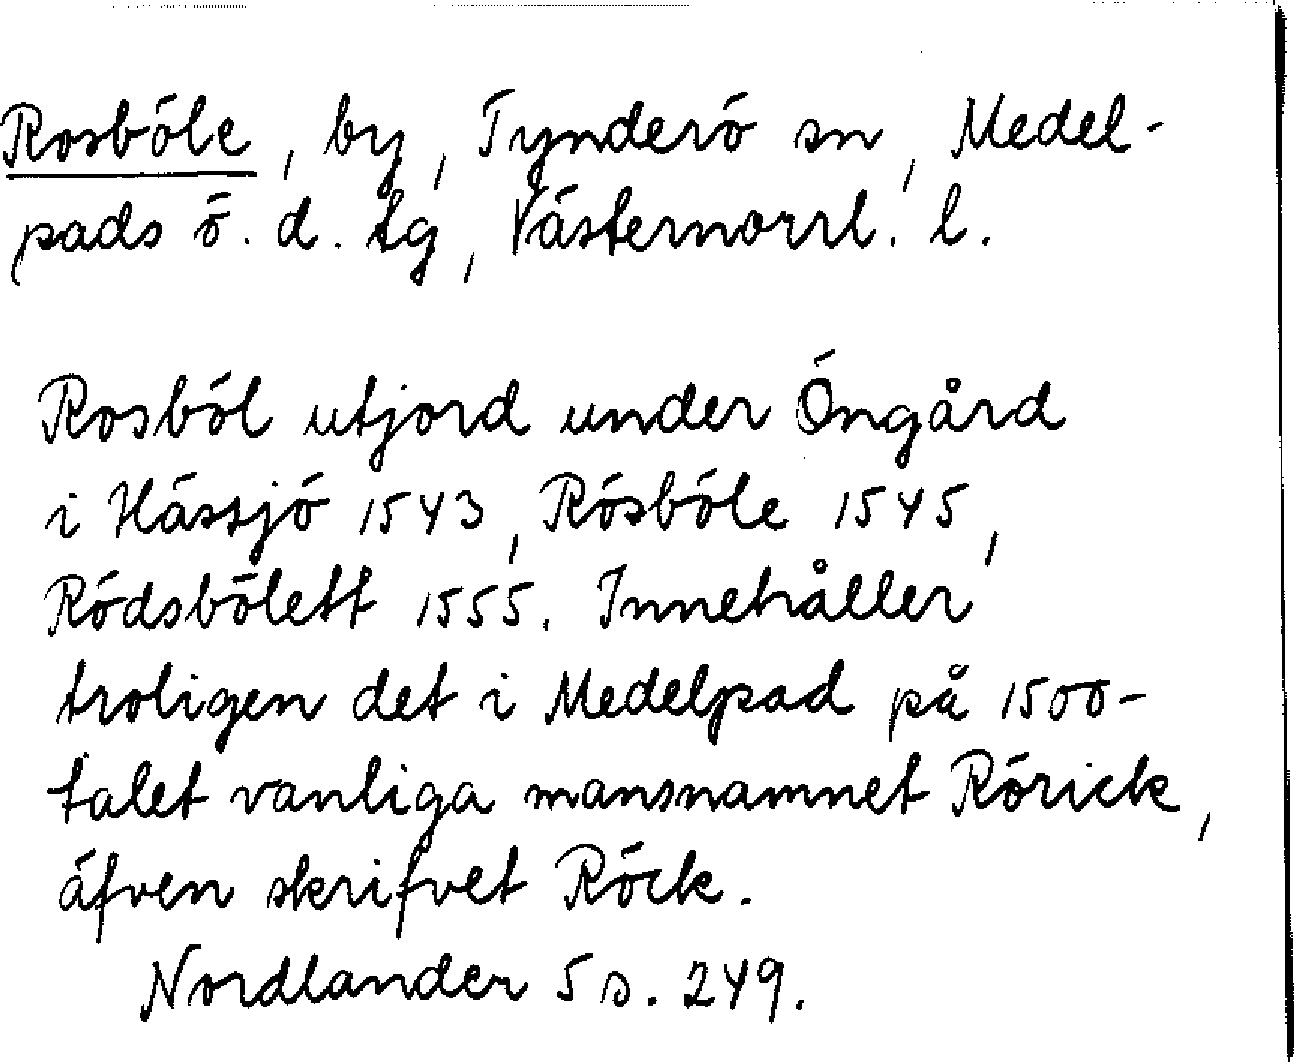 Rosböle, by, Tynderö sn, Medel-
pads ö. d. tg, Västernorrl. l.
Rosböl utjord under Öngård
i Hässjö 1543, Rösböle 1545,
Rödsbölett 1555. Innehåller
troligen det i Medelpad på 1500-
talet vanliga mansnamnet Rörick,
äfven skrifvet Röck.
Nordlander 5 s. 249.